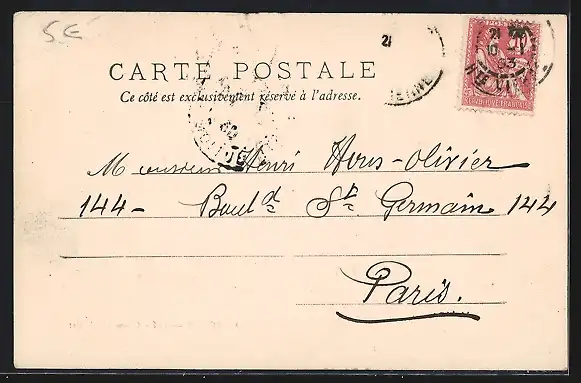 5€
CARTE POSTALE
Ce côté est exclusivement réservé à l'adresse.
21
03
Monsieur Henri Hovs-Olivier
144- Boul.d St. Germain 144
Paris.